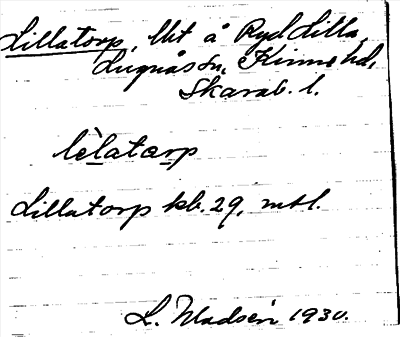 Lillatorp, lht å Ryd Lilla,
Lugnås sn, Kinne hd,
Skarab. l.
lèlatarp
Lillatorp kb. 29, mtl.
L. Madsén 1930.